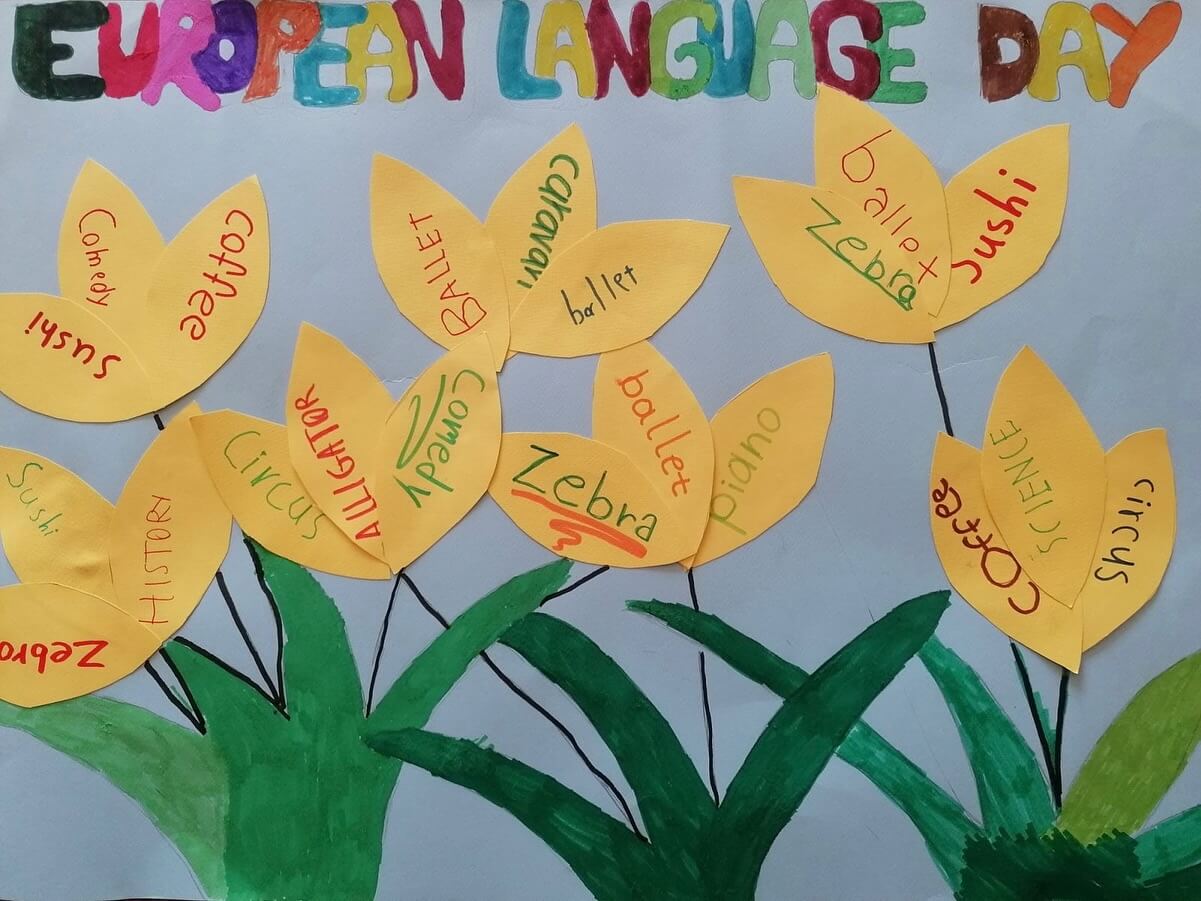 EUROPEAN LANGUAGE DAY
Comedy
Coffee
Sushi
BALLET
caravan
ballet
ballet
Zebra
Sushi
Sushi
HISTORY
Zebra
Circus
ALLIGATOR
Comedy
Zebra
ballet
piano
Coffee
SCIENCE
circus